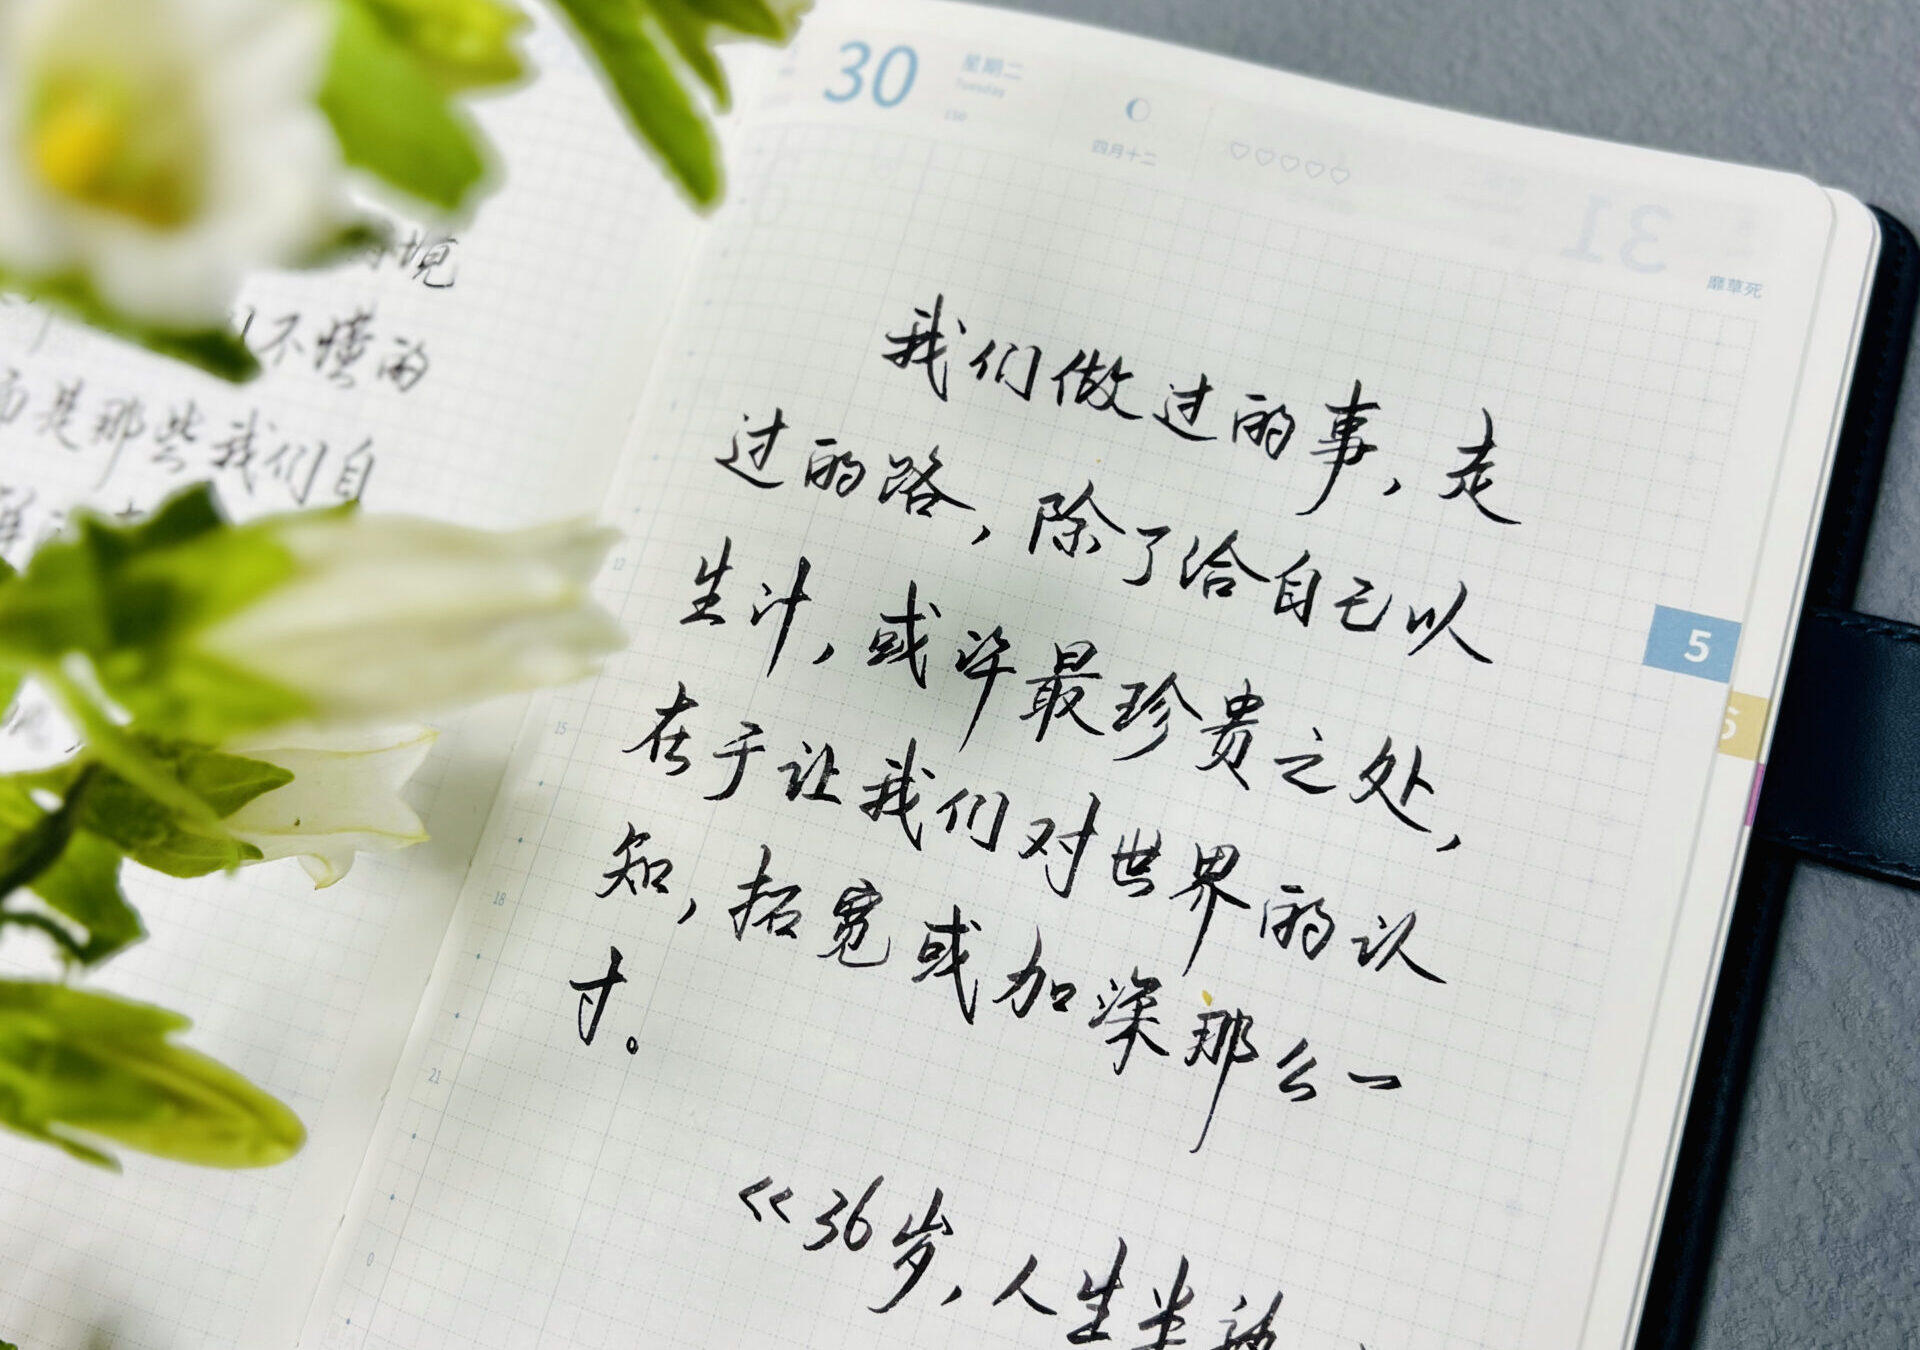 30 星期二
Tuesday
150
四月十二
31
靡草死
境
不懂的
而是那些我们自
我们做过的事，走
过的路，除了给自己以
生计，或许最珍贵之处，
在于让我们对世界的认
知，拓宽或加深那么一
寸。
《36岁，人生半熟
5
6
12
15
18
21
0